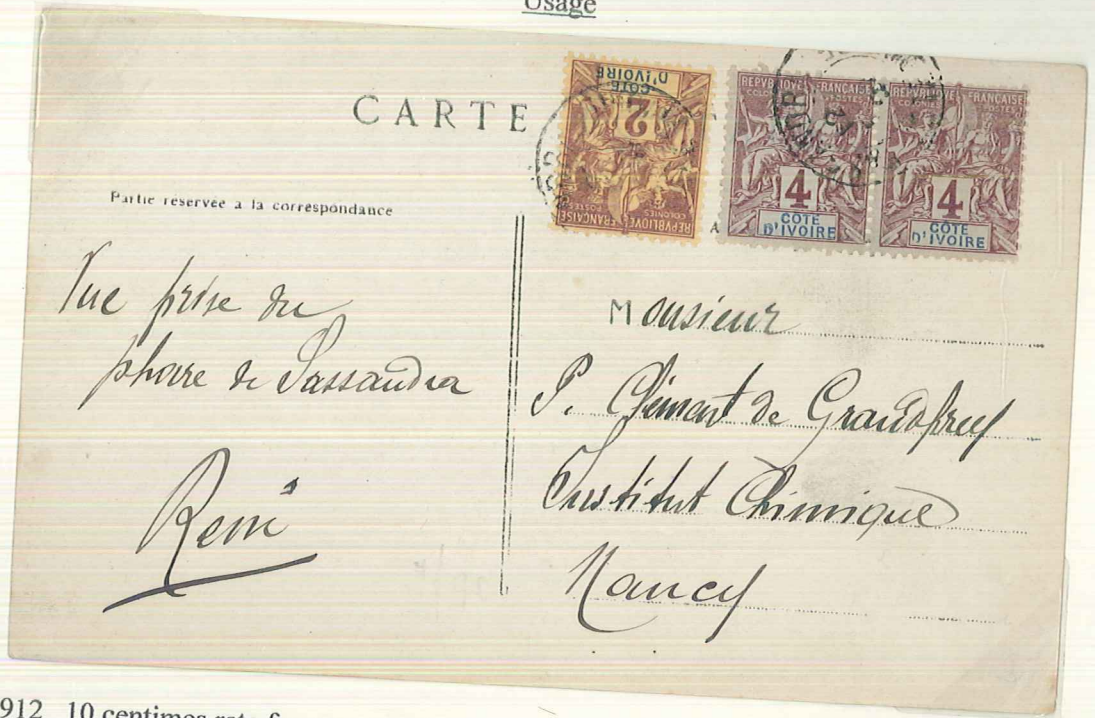 Usage
CARTE
D'IVOIRE
COTE
2
REPVBLIQVE FRANCAISE
COLONIES POSTES
REPVBLIQVE FRANÇAISE
COLONIES POSTES
4
COTE
D'IVOIRE
REPVBLIQVE FRANÇAISE
COLONIES POSTES
4
COTE
D'IVOIRE
Partie réservée a la correspondance
A
Vue prise du
phare de Sassandra
René
Monsieur
P. Clément de Grandprey
Institut Chimique
Nancy
912 10 centimes rate f